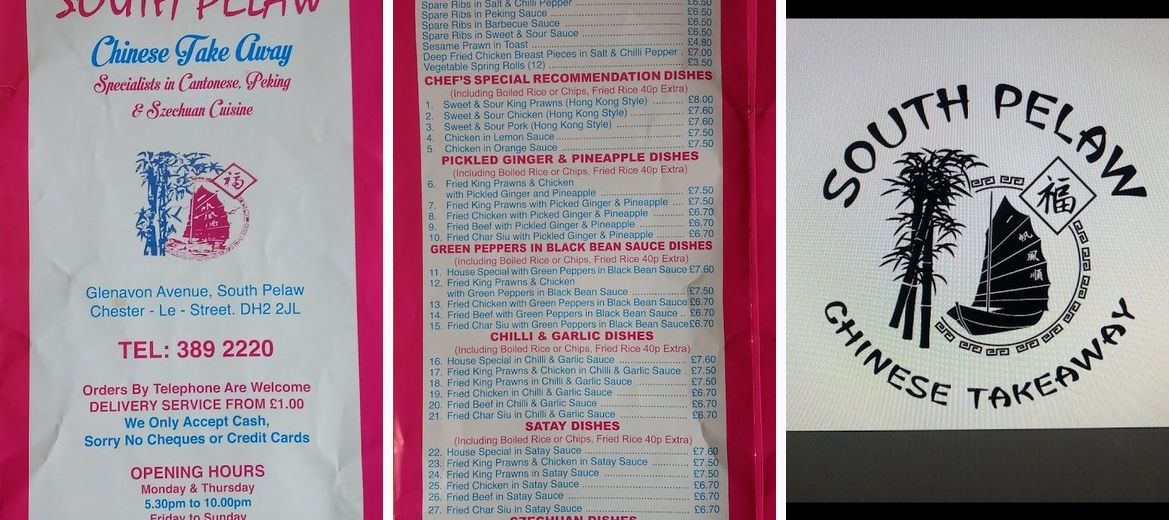 SOUTH PELAW
Chinese Take Away
Specialists in Cantonese, Peking
& Szechuan Cuisine
福
Glenavon Avenue, South Pelaw
Chester - Le - Street. DH2 2JL
TEL: 389 2220
Orders By Telephone Are Welcome
DELIVERY SERVICE FROM £1.00
We Only Accept Cash,
Sorry No Cheques or Credit Cards
OPENING HOURS
Monday & Thursday
5.30pm to 10.00pm
Friday to Sunday
Spare Ribs in Salt & Chilli Pepper £6.50
Spare Ribs in Peking Sauce £6.50
Spare Ribs in Barbecue Sauce £6.50
Spare Ribs in Sweet & Sour Sauce £6.50
Sesame Prawn in Toast £4.80
Deep Fried Chicken Breast Pieces in Salt & Chilli Pepper . £7.00
Vegetable Spring Rolls (12) £3.50
CHEF'S SPECIAL RECOMMENDATION DISHES
(Including Boiled Rice or Chips, Fried Rice 40p Extra)
1. Sweet & Sour King Prawns (Hong Kong Style) £8.00
2. Sweet & Sour Chicken (Hong Kong Style) £7.60
3. Sweet & Sour Pork (Hong Kong Style) £7.60
4. Chicken in Lemon Sauce £7.50
5. Chicken in Orange Sauce £7.50
PICKLED GINGER & PINEAPPLE DISHES
(Including Boiled Rice or Chips, Fried Rice 40p Extra)
6. Fried King Prawns & Chicken
with Pickled Ginger and Pineapple £7.50
7. Fried King Prawns with Picked Ginger & Pineapple £7.50
8. Fried Chicken with Picked Ginger & Pineapple £6.70
9. Fried Beef with Pickled Ginger & Pineapple £6.70
10. Fried Char Siu with Pickled Ginger & Pineapple £6.70
GREEN PEPPERS IN BLACK BEAN SAUCE DISHES
(Including Boiled Rice or Chips, Fried Rice 40p Extra)
11. House Special with Green Peppers in Black Bean Sauce £7.60
12. Fried King Prawns & Chicken
with Green Peppers in Black Bean Sauce £7.50
13. Fried Chicken with Green Peppers in Black Bean Sauce £6.70
14. Fried Beef with Green Peppers in Black Bean Sauce .. £6.70
15. Fried Char Siu with Green Peppers in Black Bean Sauce £6.70
CHILLI & GARLIC DISHES
(Including Boiled Rice or Chips, Fried Rice 40p Extra)
16. House Special in Chilli & Garlic Sauce £7.60
17. Fried King Prawns & Chicken in Chilli & Garlic Sauce . £7.50
18. Fried King Prawns in Chilli & Garlic Sauce £7.50
19. Fried Chicken in Chilli & Garlic Sauce £6.70
20. Fried Beef in Chilli & Garlic Sauce £6.70
21. Fried Char Siu in Chilli & Garlic Sauce £6.70
SATAY DISHES
(Including Boiled Rice or Chips, Fried Rice 40p Extra)
22. House Special in Satay Sauce £7.60
23. Fried King Prawns & Chicken in Satay Sauce £7.50
24. Fried King Prawns in Satay Sauce £7.50
25. Fried Chicken in Satay Sauce £6.70
26. Fried Beef in Satay Sauce £6.70
27. Fried Char Siu in Satay Sauce £6.70
SZECHUAN DISHES
SOUTH PELAW
福
帆風順
CHINESE TAKEAWAY